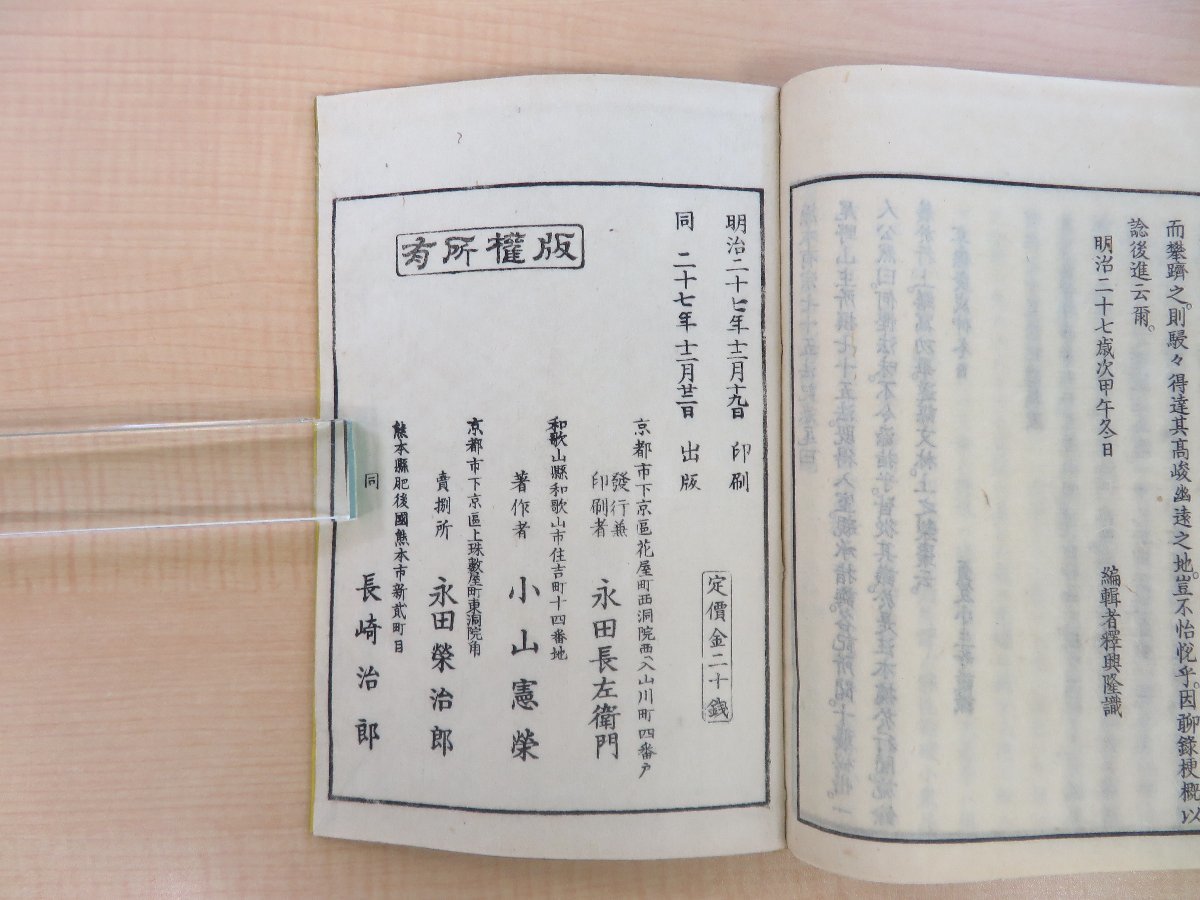 而攀躋之。則駸々得達其高峻幽遠之地。豈不怡悅乎。因聊錄梗概以
諗後進云爾。
明治二十七歳次甲午冬日
編輯者釋興隆識
明治二十七年十二月十九日 印刷
同 二十七年十二月廿二日 出版
版權所有
定價金二十錢
京都市下京區花屋町西洞院西入山川町四番戸
發行兼印刷者 永田長左衛門
和歌山縣和歌山市住吉町十四番地
著作者 小山憲榮
京都市下京區上珠數屋町東洞院角
賣捌所 永田榮治郎
熊本縣肥後國熊本市新貳町目
同 長崎治郎